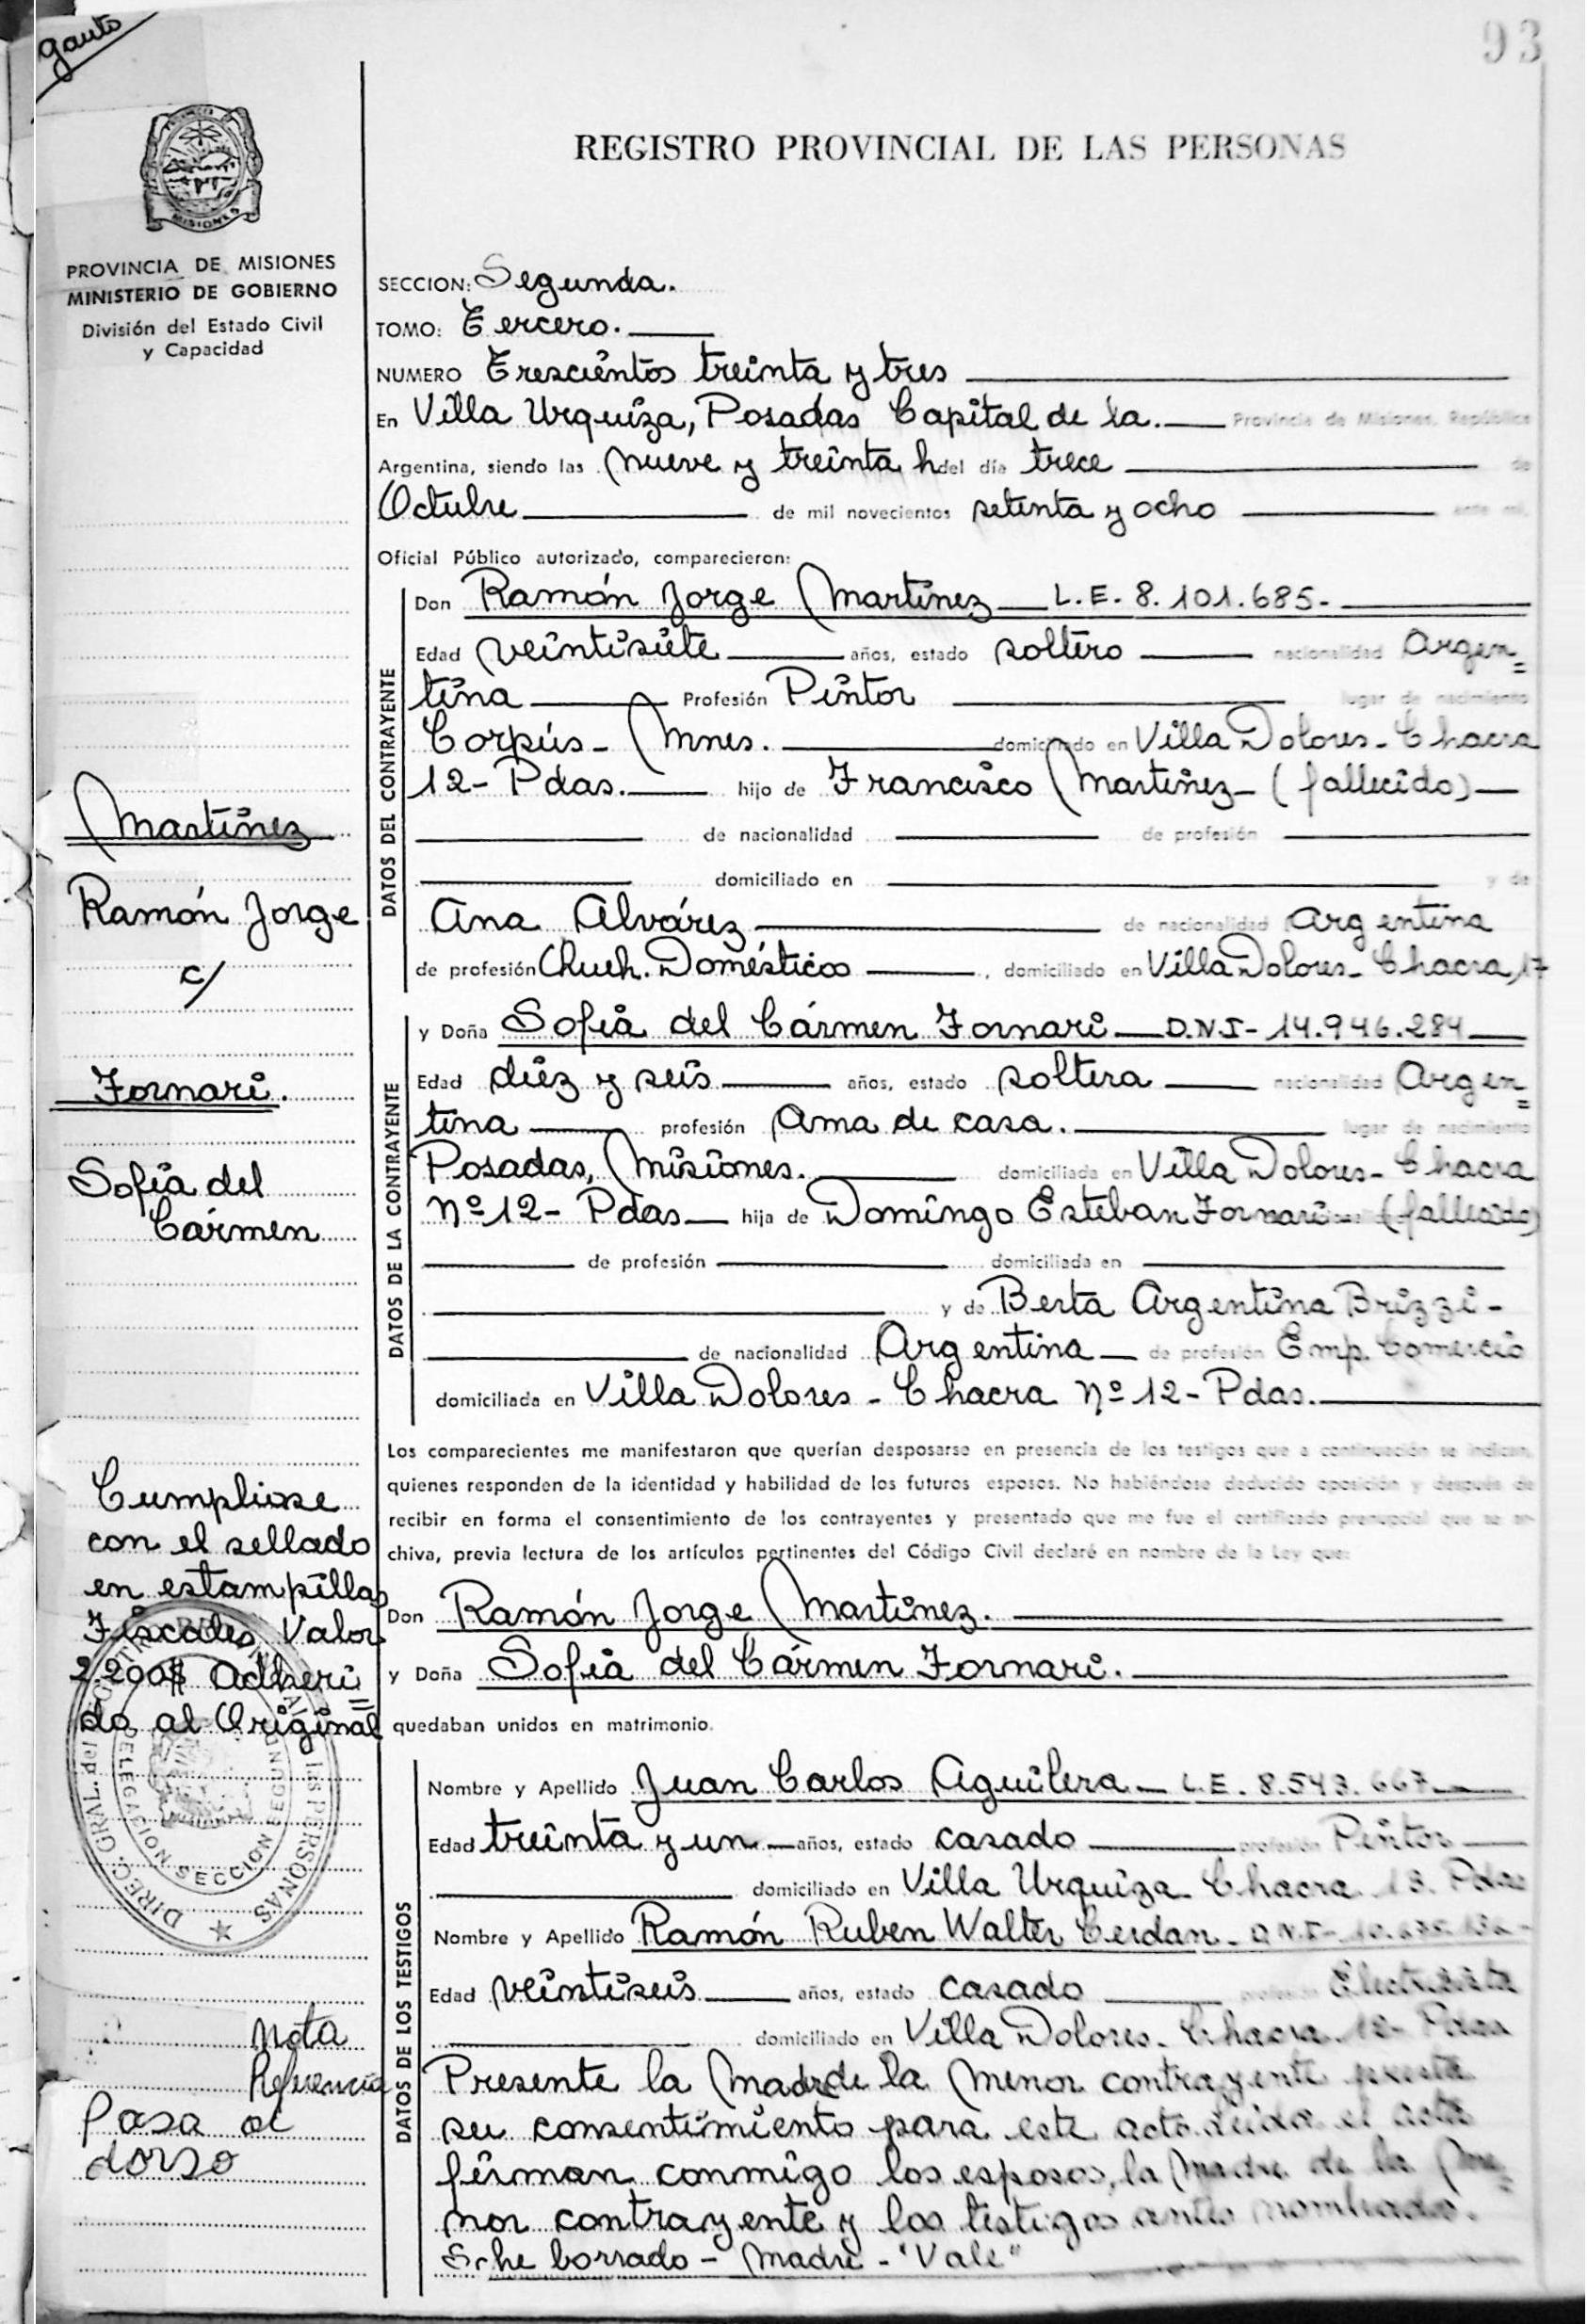 gauto
93
REGISTRO PROVINCIAL DE LAS PERSONAS
MISIONES
PROVINCIA DE MISIONES
MINISTERIO DE GOBIERNO
División del Estado Civil
y Capacidad
SECCION: Segunda.
TOMO: Tercero.
NUMERO Trescientos treinta y tres
En Villa Urquiza, Posadas Capital de la. Provincia de Misiones, República
Argentina, siendo las nueve y treinta h del día trece de
Octubre de mil novecientos setenta y ocho ante mí,
Oficial Público autorizado, comparecieron:
DATOS DEL CONTRAYENTE
Don Ramón Jorge Martínez L.E. 8.101.685-
Edad veintisiete años, estado soltero nacionalidad Argen=
tina Profesión Pintor lugar de nacimiento
Corpús- Mnes. domiciliado en Villa Dolores- Chacra
12- Pdas. hijo de Francisco Martínez- (fallecido)
de nacionalidad de profesión
domiciliado en y de
Ana Alvárez de nacionalidad Argentina
de profesión Queh. Domésticos, domiciliado en Villa Dolores- Chacra 17
Martínez
Ramón Jorge
c/
Fornari.
Sofía del
Cármen
DATOS DE LA CONTRAYENTE
y Doña Sofía del Cármen Fornari D.N.I- 14.946.284
Edad diez y seis años, estado soltera nacionalidad Argen=
tina profesión Ama de casa. lugar de nacimiento
Posadas, Misiones. domiciliada en Villa Dolores- Chacra
Nº 12- Pdas hija de Domingo Esteban Fornari (fallecido)
de profesión domiciliada en
y de Berta Argentina Brizzi-
de nacionalidad Argentina de profesión Emp. Comercio
domiciliada en Villa Dolores - Chacra Nº 12- Pdas.
Los comparecientes me manifestaron que querían desposarse en presencia de los testigos que a continuación se indican,
quienes responden de la identidad y habilidad de los futuros esposos. No habiéndose deducido oposición y después de
recibir en forma el consentimiento de los contrayentes y presentado que me fue el certificado prenupcial que se ar-
chiva, previa lectura de los artículos pertinentes del Código Civil declaré en nombre de la Ley que:
Don Ramón Jorge Martínez.
y Doña Sofía del Cármen Fornari.
quedaban unidos en matrimonio.
Cumpliose
con el sellado
en estampillas
Fiscales Valor
2200$ Adheri=
do al Original
DIREC. GRAL. del las PERSONAS
DELEGACION SECCION SEGUNDA
DATOS DE LOS TESTIGOS
Nombre y Apellido Juan Carlos Aguilera- L.E. 8.543.667
Edad treinta y un años, estado casado profesión Pintor
domiciliado en Villa Urquiza- Chacra 13. Pdas
Nombre y Apellido Ramón Ruben Walter Cerdan- D.N.I-
Edad veintiseis años, estado casado profesión Electricista
domiciliado en Villa Dolores- Chacra 12- Pdas
Presente la Madre de la Menor contrayente presta
su consentimiento para este acto. Leída el acta
firman conmigo los esposos, la Madre de la Me=
nor contrayente y los testigos antes nombrados.
S/he borrado - Madre - "Vale"
Nota
Referencia
Pasa al
dorso